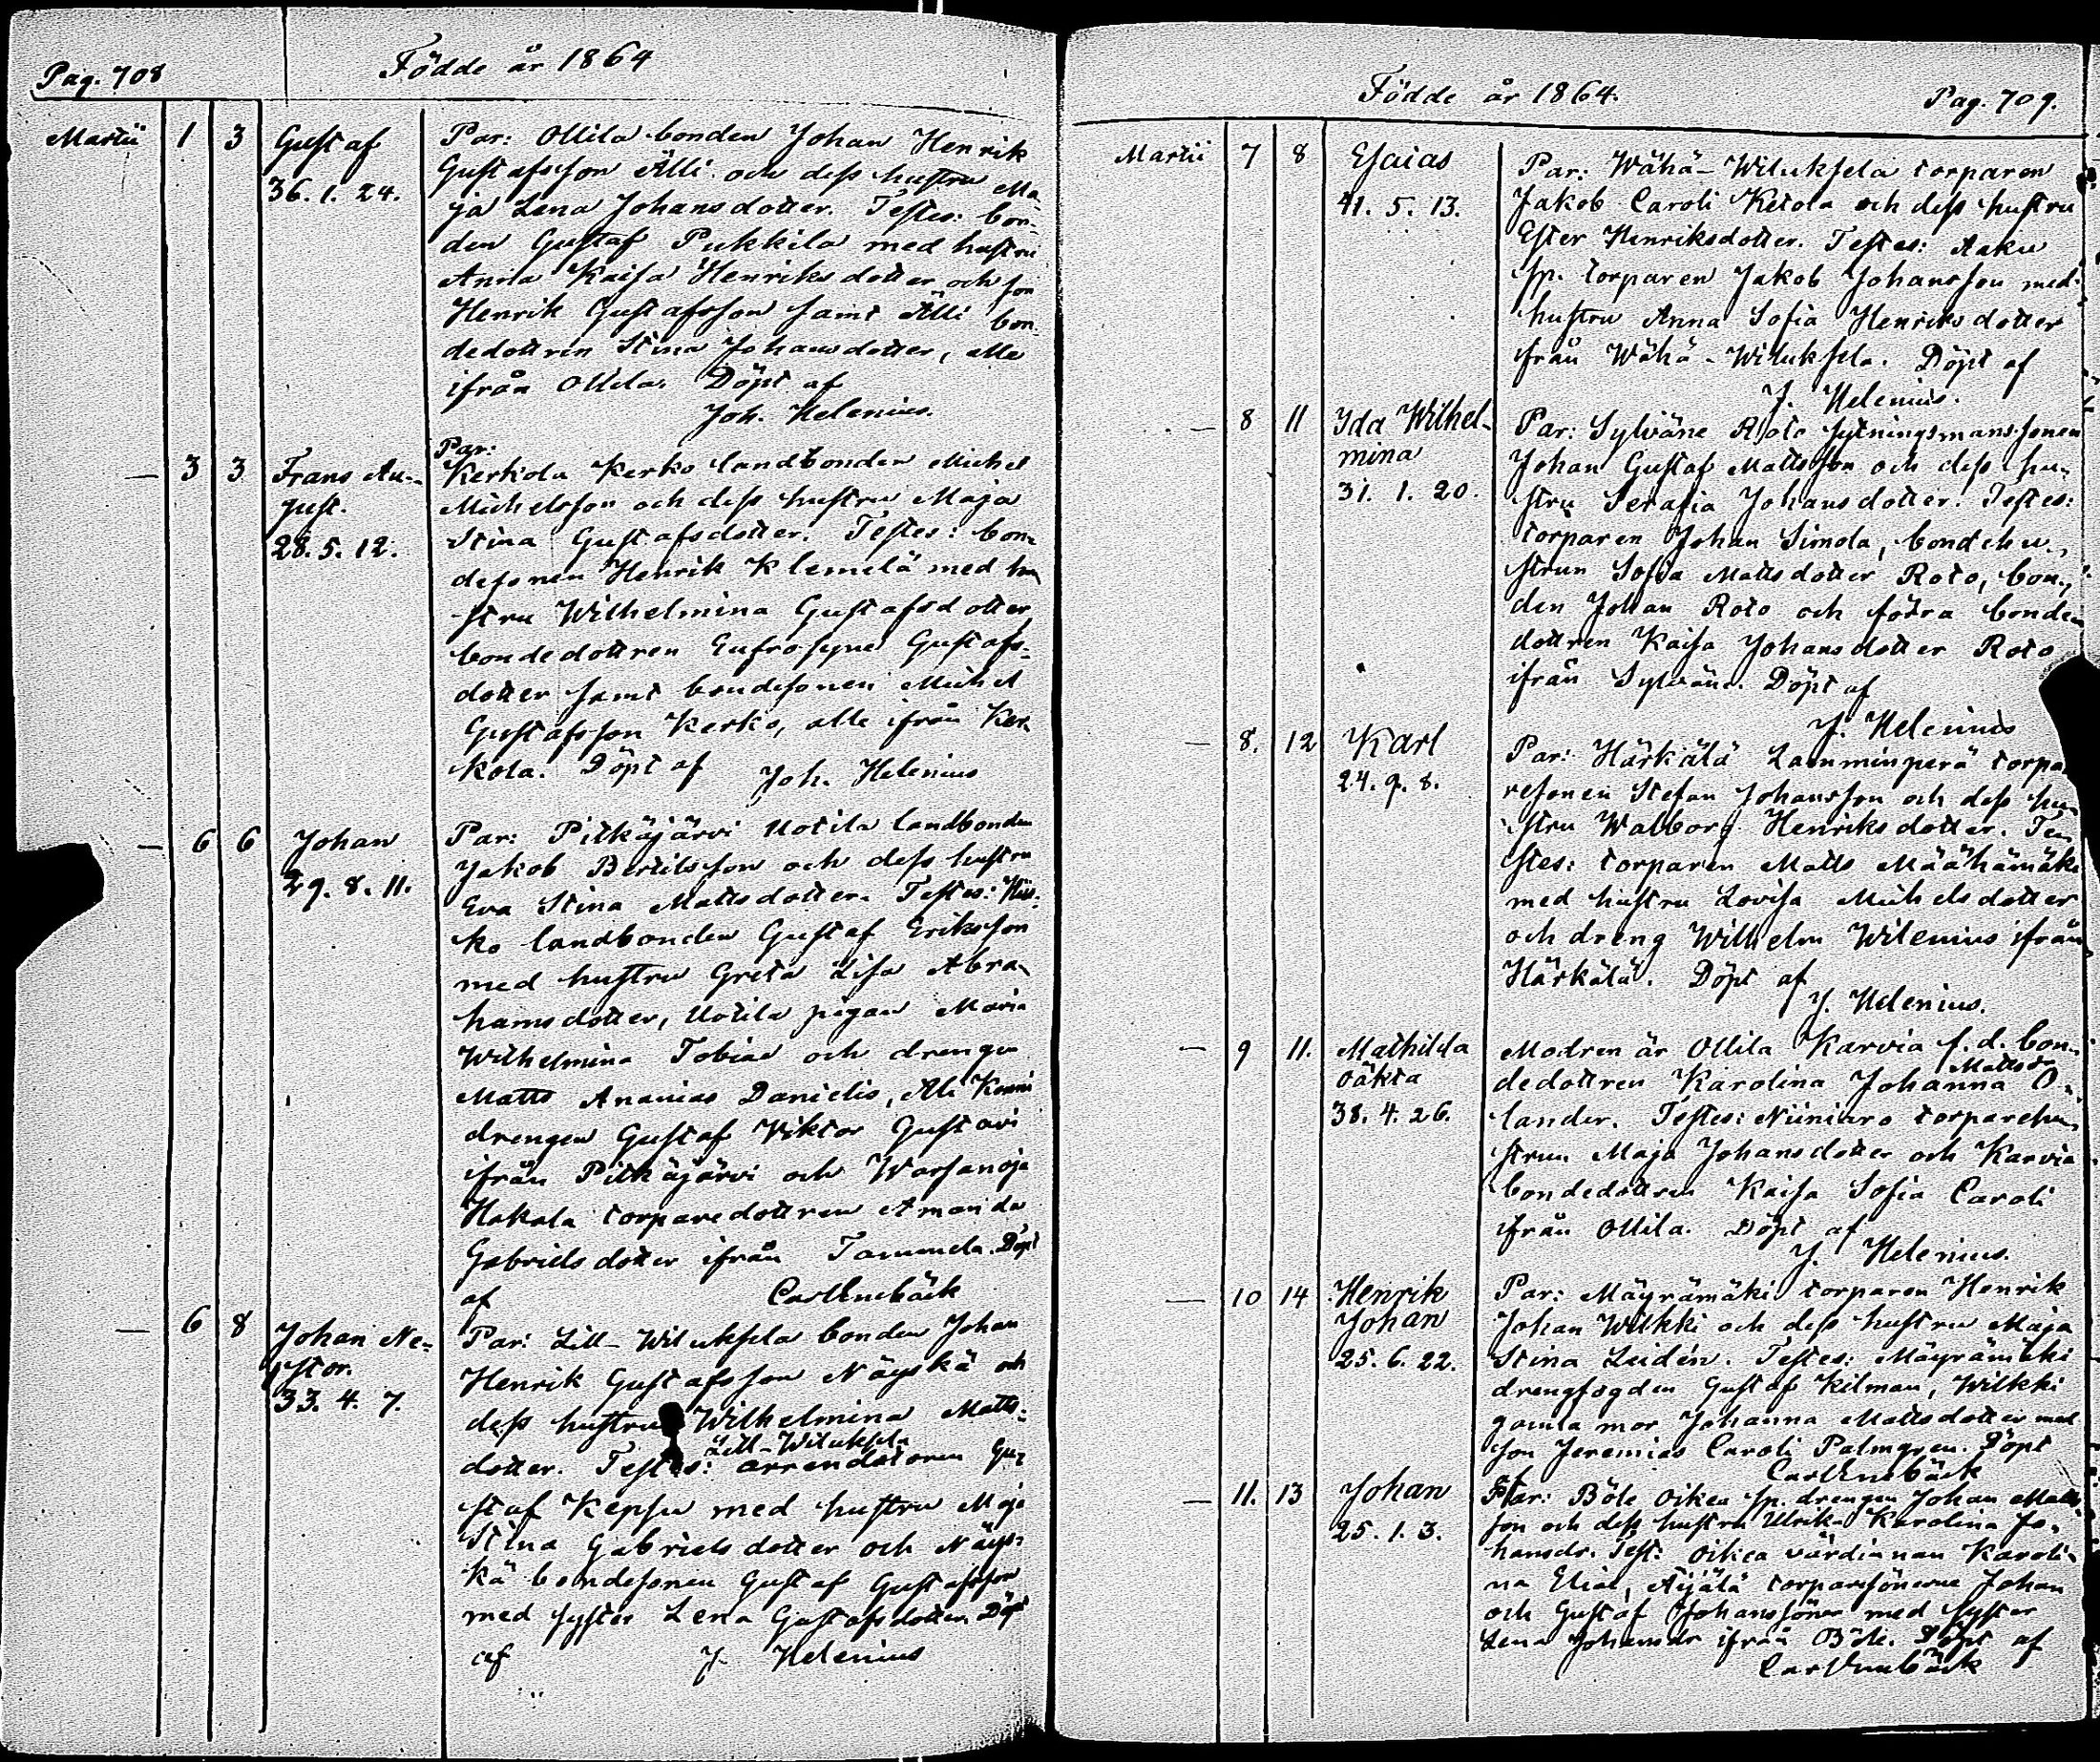 Pag. 708
Födde år 1864
Martii 1 3 Gustaf
36. 1. 24.
Par: Ollila bonden Johan Henrik
Gustafsson Älli och dess hustru Ma-
ja Lena Johansdotter. Testes: bon-
den Gustaf Pukkila med hustru
Anna Kaisa Henriksdotter och son
Henrik Gustafsson samt Älli bon-
dedottren Stina Johansdotter, alla
ifrån Ollila. Döpt af
Joh. Helenius.
— 3 3 Frans Au-
gust.
28. 5. 12.
Par:
Kerkola Kerko landbonden Michel
Michelsson och dess hustru Maja
Stina Gustafsdotter. Testes: bon-
desonen Henrik Klemelä med hu
stru Wilhelmina Gustafsdotter,
bondedottren Eufrosyne Gustafs-
dotter samt bondesonen Michel
Gustafsson Kerko, alle ifrån Ker-
kola. Döpt af Joh. Helenius
— 6 6 Johan
29. 8. 11.
Par: Pitkäjärvi Uotila landbonden
Jakob Bertilsson och dess hustru
Eva Stina Mattsdotter. Testes: Kis-
ko landbonden Gustaf Eriksson
med hustru Greta Lisa Abra-
hamsdotter, Uotila pigan Maria
Wilhelmina Tobiae och drengen
Matts Ananias Danielis,
drengen Gustaf Viktor Gustavi
ifrån Pitkäjärvi och Warsanoja
Hakala torparedottren Amanda
Gabrielsdotter ifrån Tammela. Döpt
af Carl Enebäck
— 6 8 Johan Ne-
stor.
33. 4. 7.
Par: Lill-Wiluksela bonden Johan
Henrik Gustafsson Näyskä och
dess hustru Wilhelmina Matts-
dotter. Testes: Lill-Wiluksela arrendatoren Gu-
staf Kepsu med hustru Maja
Stina Gabrielsdotter och Näys-
kä bondesonen Gustaf Gustafsson
med syster Lena Gustafsdotter. Döpt
af J. Helenius
Födde år 1864.
Pag. 709.
Martii 7 8 Esaias
41. 5. 13.
Par: Wähä-Wiluksela torparen
Jakob Caroli Ketola och dess hustru
Ester Henriksdotter. Testes: Aaku
sp. torparen Jakob Johansson med
hustru Anna Sofia Henriksdotter
ifrån Wähä-Wiluksela. Döpt af
J. Helenius.
— 8 11 Ida Wilhel-
mina
31. 1. 20.
Par: Sylväne Roto sytningsmanssonen
Johan Gustaf Mattsson och dess hu-
stru Serafia Johansdotter. Testes:
torparen Johan Simola, bondehu-
strun Sofia Mattsdotter Roto, bon-
den Johan Roto och förra bonde-
dottren Kaisa Johansdotter Roto
ifrån Sylväne. Döpt af
J. Helenius
— 8. 12 Karl
24. 9. 8.
Par: Härkälä Lamminperä torpa-
resonen Stefan Johansson och dess hu-
stru Walborg Henriksdotter. Te-
stes: torparen Matts Määhämäki
med hustru Lovisa Michelsdotter
och dreng Wilhelm Wilenius ifrån
Härkälä. Döpt af
J. Helenius.
— 9 11. Mathilda
oäkta
38. 4. 26.
Modren är Ollila Karvia f. d. bon-
dedottren Karolina Johanna Mattsdr O-
lander. Testes: Niiniaro torparehu-
strun Maja Johansdotter och Karvia
bondedottren Kaisa Sofia Caroli
ifrån Ollila. Döpt af
J. Helenius.
— 10 14 Henrik
Johan
25. 6. 22.
Par: Mäyrämäki torparen Henrik
Johan Wilkki och dess hustru Maja
Stina Leidén. Testes: Mäyrämäki
drengfogden Gustaf Kilman, Wilkki
gamla mor Johanna Mattsdotter med
son Jeremias Caroli Palmgren. Döpt
af Carl Enebäck
— 11. 13 Johan
25. 1. 3.
Par: Böle Oikea sp. drengen Johan Matts
son och dess hustru Ulrika Karolina Jo-
hansdr. Test: Oikea värdinnan Karoli-
na Eliae, Äijälä torparesönerne Johan
och Gustaf Johanssöner med syster
Lena Johansdr ifrån Böle. Döpt af
Carl Enebäck